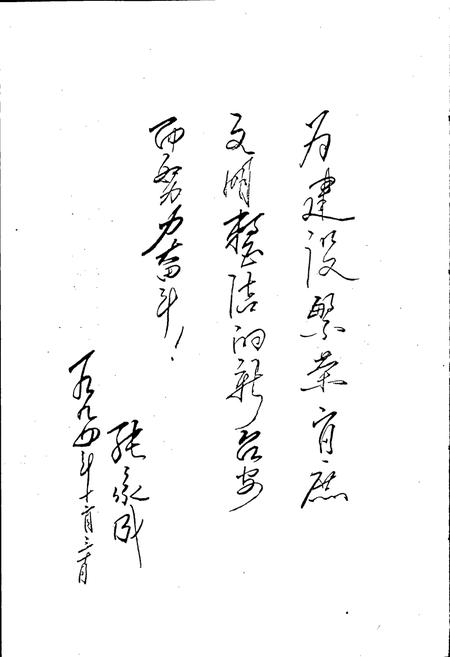 为建设繁荣富庶
文明整洁的新台安
而努力奋斗！
张家成
一九九四年十二月三十日